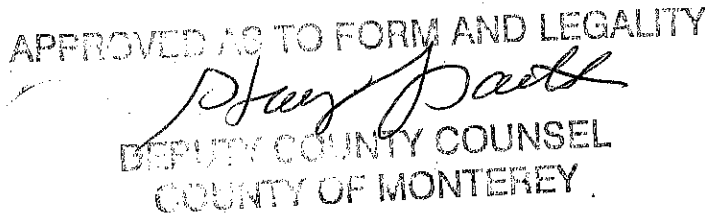 APPROVED AS TO FORM AND LEGALITY
DEPUTY COUNTY COUNSEL
COUNTY OF MONTEREY